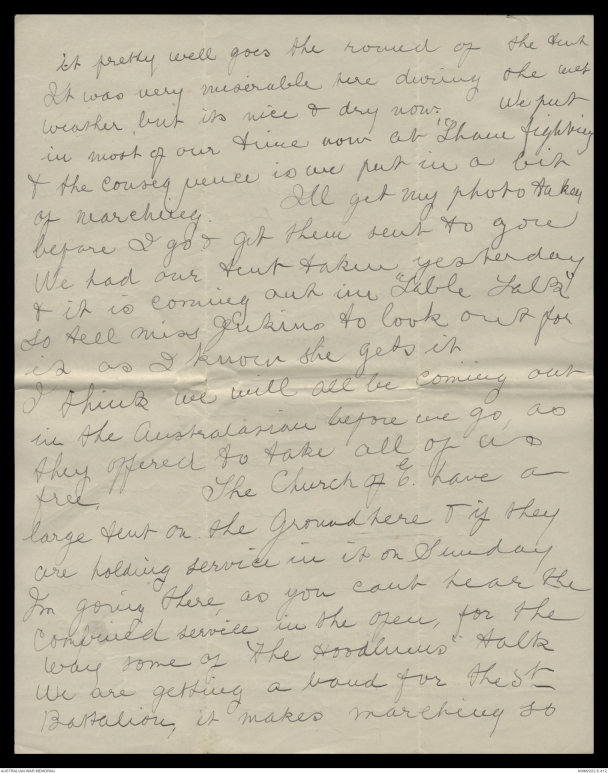 it pretty well goes the round of the tent
It was very miserable here during the wet
weather, but its nice & dry now. We put
in most of our time now at "Sham fighting
& the consequence is we put in a bit
of marching. Ill get my photo taken
before I go & get them sent to you
We had our tent taken yesterday
& it is coming out in "Table Talk"
so tell miss Jenkins to look out for
it as I know she gets it
I think we will all be coming out
in the Australasian before we go, as
they offered to take all of us
free. The Church of E. have a
large tent on the Ground here & if they
are holding service in it on Sunday
Im going there, as you cant hear the
combined service in the open, for the
way some of "the Hoodlums" talk
We are getting a band for the 5th
Battalion, it makes marching so
AUSTRALIAN WAR MEMORIAL